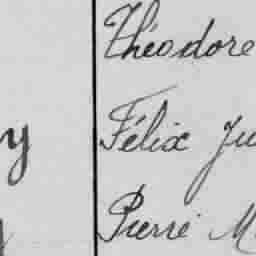 Théodore
y Félix Ju
Pierre M